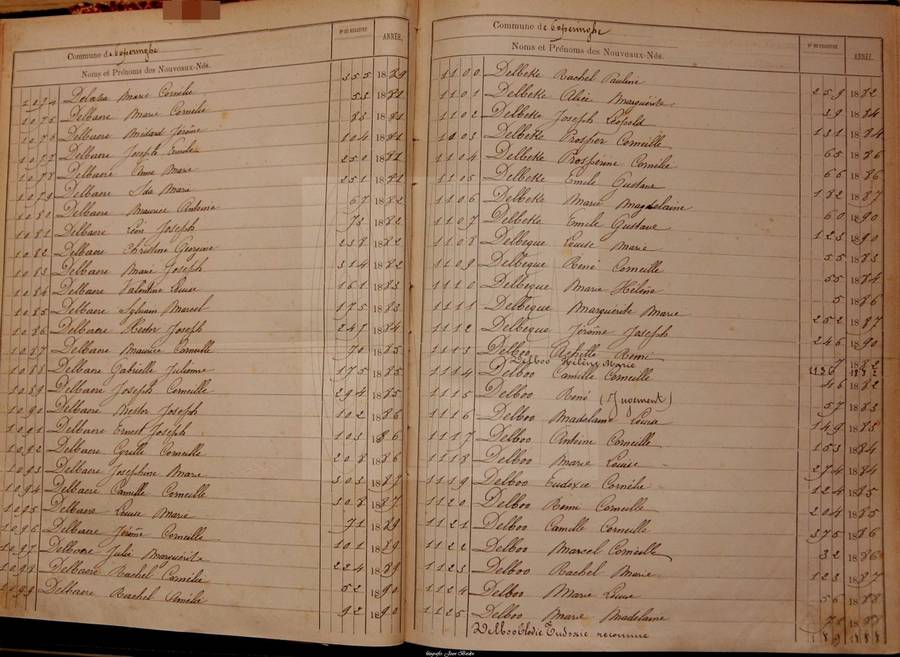 Commune de Poperinghe
Noms et Prénoms des Nouveaux-Nés.
N° DU REGISTRE
ANNÉE.
1074 Marie Cornélie 355 1889
1075 Delbaere Marie Cornélie 53 1881
1076 Delbaere Médard Jérôme 83 1881
1077 Delbaere Joseph 104 1881
1078 Delbaere Marie 250 1881
1079 Delbaere Ida Marie 251 1881
1080 Delbaere Maurice Antoine 67 1882
1081 Delbaere Léon Joseph 73 1882
1082 Delbaere Christine Georgine 238 1882
1083 Delbaere Marie Joseph 314 1882
1084 Delbaere Valentine Louise 161 1883
1085 Delbaere Sylvain Marcel 175 1883
1086 Delbaere Hector Joseph 247 1884
1087 Delbaere Maurice Corneille 70 1885
1088 Delbaere Gabrielle Julienne 175 1885
1089 Delbaere Joseph Corneille 294 1885
1090 Delbaere Nestor Joseph 102 1886
1091 Delbaere Ernest Joseph 103 1886
1092 Delbaere Cyrille Corneille 208 1886
1093 Delbaere Joséphine Marie 303 1887
1094 Delbaere Camille Corneille 308 1887
1095 Delbaere Louise Marie 71 1889
1096 Delbaere Jérôme Corneille 101 1889
1097 Delbaere Julie Marguérite 224 1889
1098 Delbaere Rachel Cornélie 52 1890
1099 Delbaere Rachel Amélie 92 1890
Commune de Poperinghe
Noms et Prénoms des Nouveaux-Nés.
N° DU REGISTRE
ANNÉE.
1100 Delbeke Rachel Pauline 259 1882
1101 Delbeke Alice Marguérite 39 1884
1102 Delbeke Joseph Léopold 131 1884
1103 Delbeke Prosper Corneille 65 1886
1104 Delbeke Prosperine Cornélie 66 1886
1105 Delbeke Emile Gustave 182 1887
1106 Delbeke Marie Magdelaine 60 1890
1107 Delbeke Emile Gustave 123 1890
1108 Delbeque Louise Marie 55 1883
1109 Delbeque René Corneille 55 1884
1110 Delbeque Marie Hélène 5 1886
1111 Delbeque Marguérite Marie 252 1887
1112 Delbeque Jérôme Joseph 246 1890
1113 Delboo Achille Remi 7 1882
Delboo Hélène Marie
1114 Delboo Camille Corneille 46 1882
1115 Delboo René (Jugement) 57 1883
1116 Delboo Madelaine Louise 149 1883
1117 Delboo Antoine Corneille 153 1884
1118 Delboo Marie Louise 274 1884
1119 Delboo Eudoxie Cornélie 124 1885
1120 Delboo Remi Corneille 204 1885
1121 Delboo Camille Corneille 375 1886
1122 Delboo Marcel Corneille 32 1886
1123 Delboo Rachel Marie 123 1887
1124 Delboo Marie Louise 56 1888
1125 Delboo Marie Madelaine 75 1888
Delboo Elodie Eudoxie reconnue 189 1888